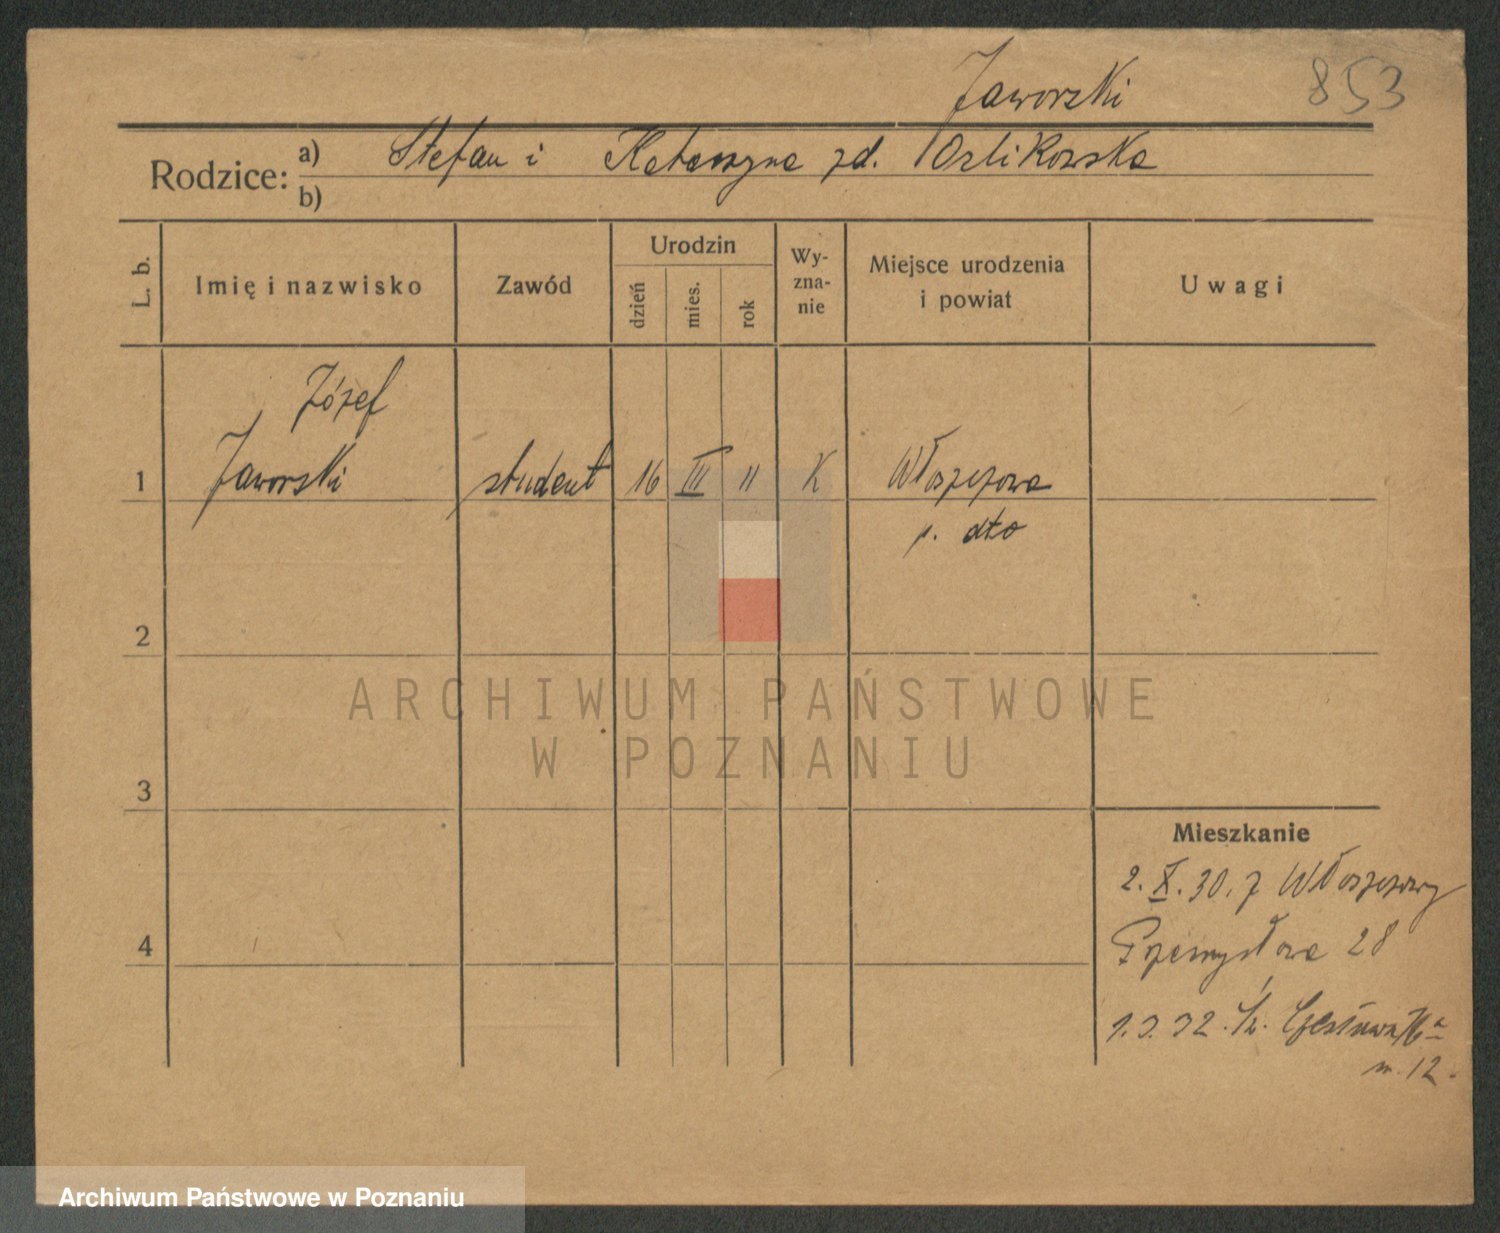 Jaworski 853
Rodzice: a) Stefan i Katarzyna zd. Orlikowska
b)
L. b.
Imię i nazwisko
Zawód
Urodzin
dzień
mies.
rok
Wy-
zna-
nie
Miejsce urodzenia
i powiat
Uwagi
Józef
1 Jaworski student 16 III 11 K Włoszczowa
p. dto
2
3
4
Mieszkanie
2. X. 30. z Włoszczowy
Przemysłowa 28
1.3.32. m. 12.
ARCHIWUM PAŃSTWOWE
W POZNANIU
Archiwum Państwowe w Poznaniu